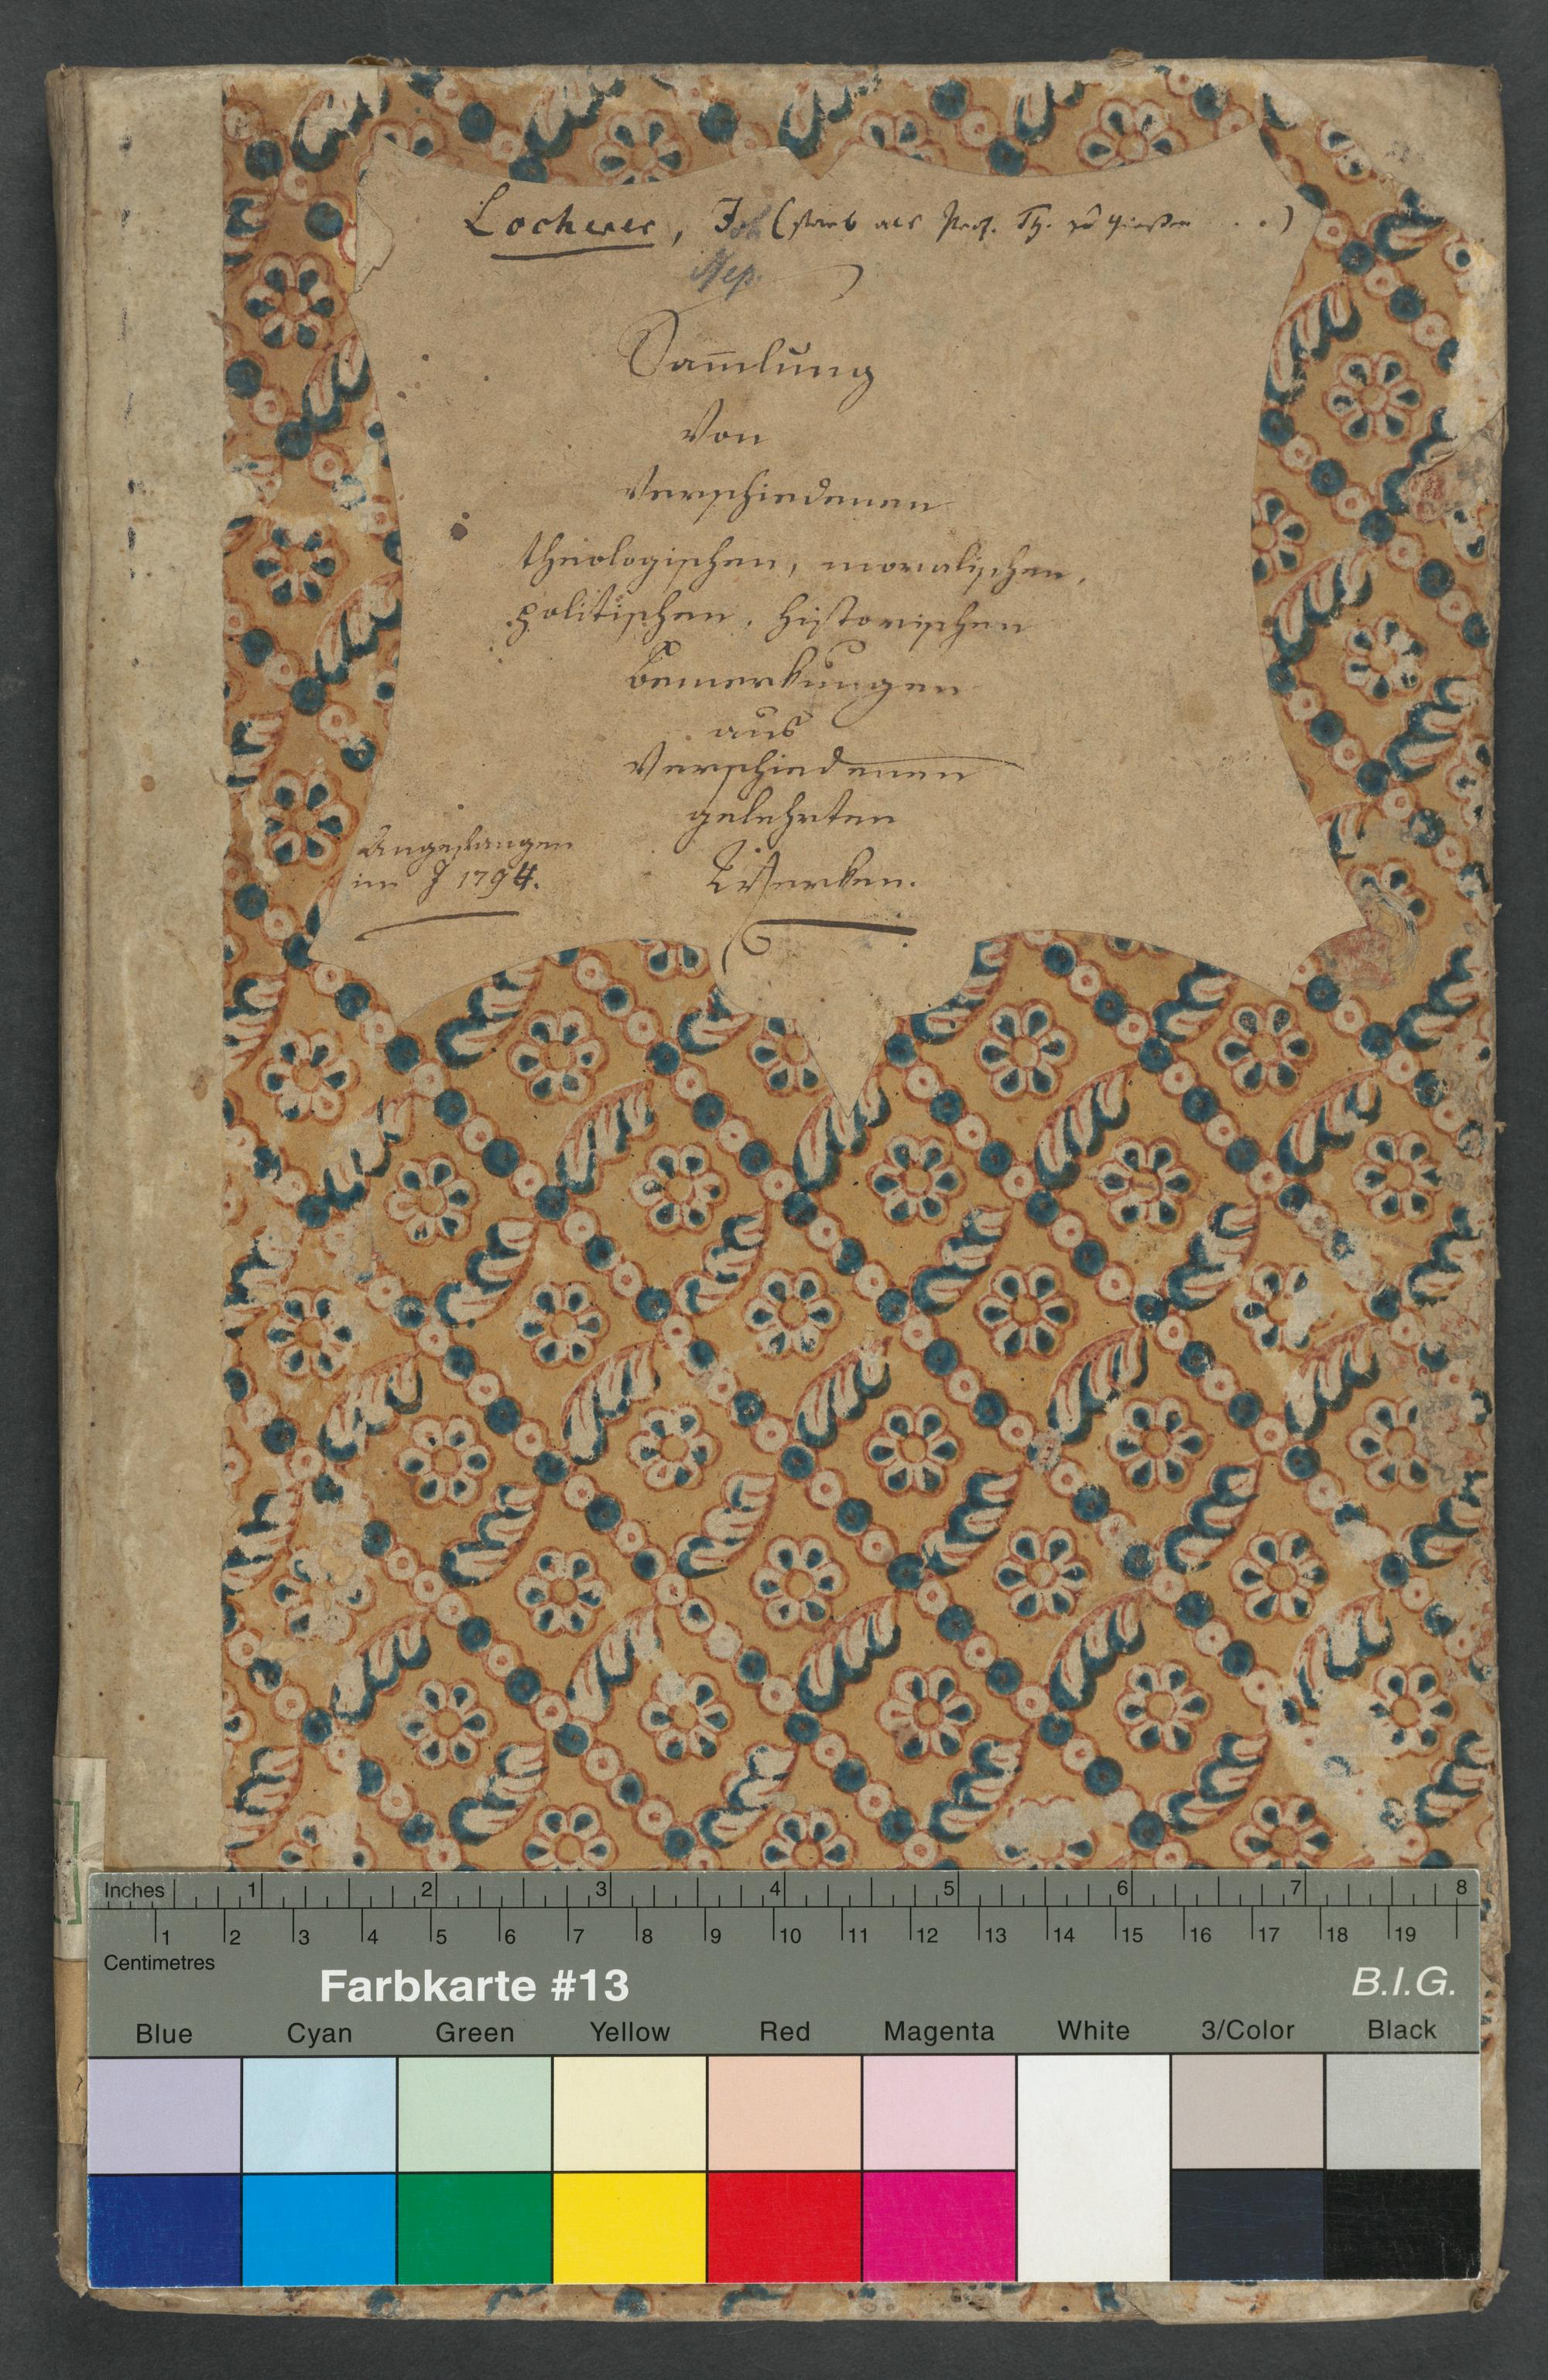 Locherer, Joh (starb als Prof. Th. zu Giessen . .)
Nep.
Sam̅lung
Von
Verschiedenen
theologischen, moralischen,
politischen, historischen
Bemerkungen
aus
Verschiedenen
gelehrten
Werken.
Angefangen
im J 1794.
Inches 1 2 3 4 5 6 7 8
1 2 3 4 5 6 7 8 9 10 11 12 13 14 15 16 17 18 19
Centimetres
Farbkarte #13 B.I.G.
Blue Cyan Green Yellow Red Magenta White 3/Color Black